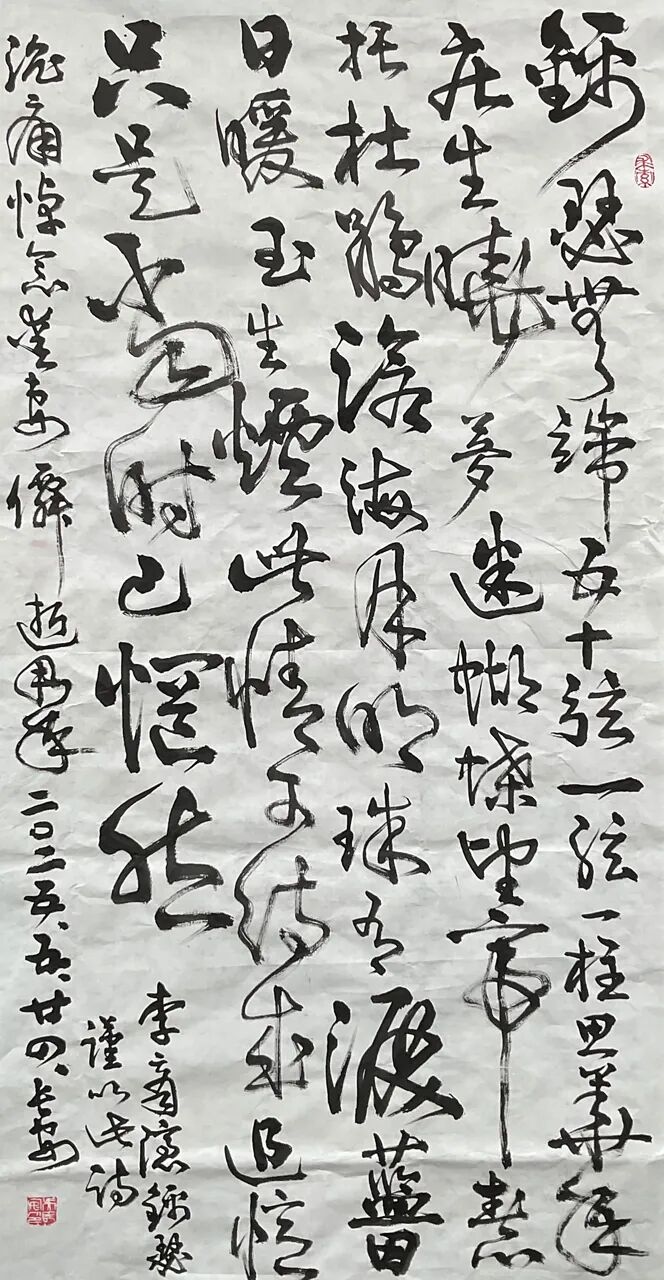 錦瑟無端五十弦一弦一柱思華年
庄生曉夢迷蝴蝶望帝春心
托杜鵑滄海月明珠有淚藍田
日暖玉生煙此情可待成追憶
只是當时已惘然
李商隱錦瑟
謹以此詩
沉痛悼念逝周年二〇二五、五、廿四、長安